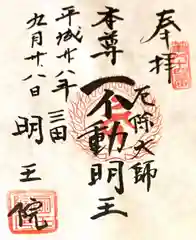 奉拝
厄除大師
本尊
不動明王
平成廿八年
九月廿八日
三田
明王院